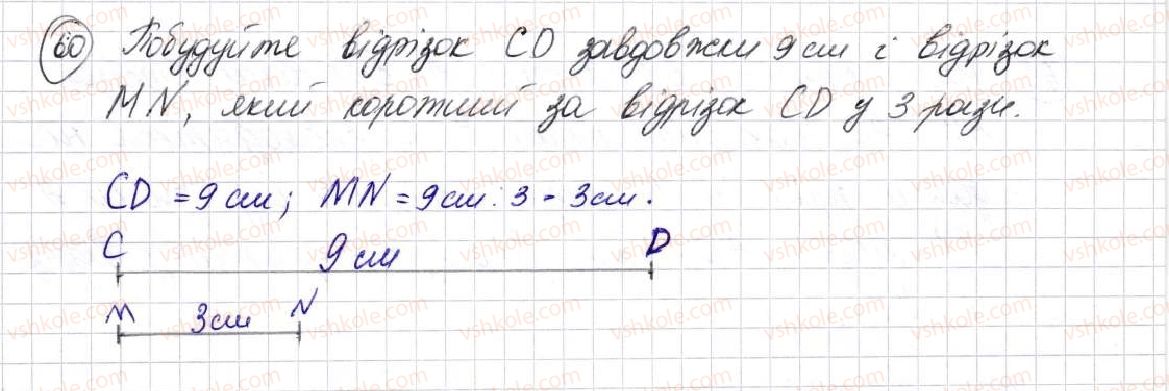 60 Побудуйте відрізок CD завдовжки 9 см і відрізок
MN, який коротший за відрізок CD у 3 рази.
CD = 9 см; MN = 9 см : 3 = 3 см.
C 9 см D
M 3 см N
vshkole.com